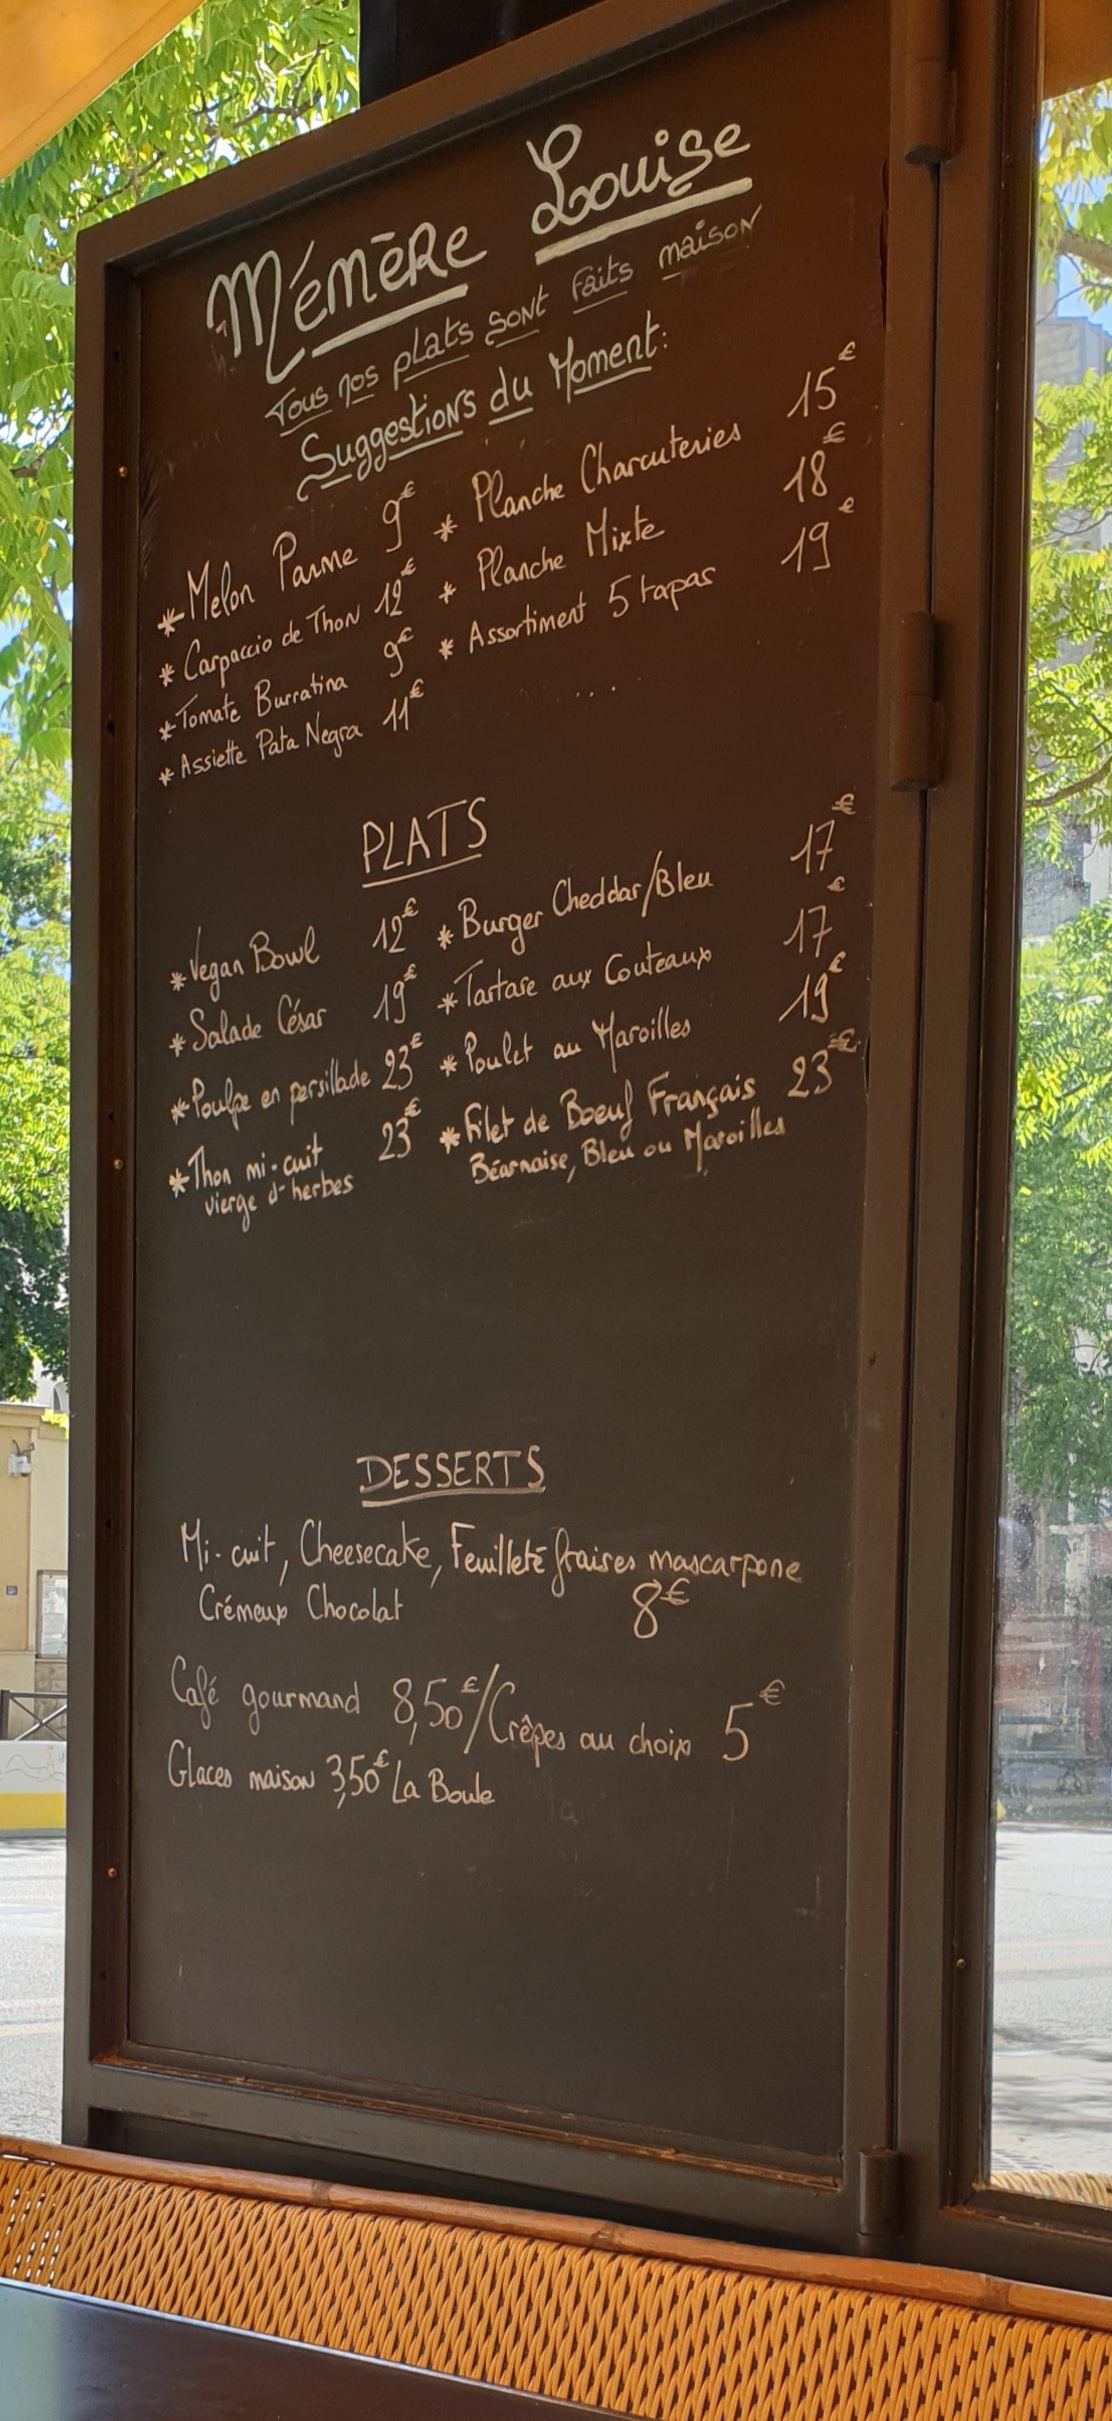 Mémère Louise
Tous nos plats sont faits maison
Suggestions du Moment:
* Melon Parme 9€
* Carpaccio de Thon 12€
* Tomate Burratina 9€
* Assiette Pata Negra 11€
* Planche Charcuteries 15€
* Planche Mixte 18€
* Assortiment 5 tapas 19€
....
PLATS
* Vegan Bowl 12€
* Salade César 19€
* Poulpe en persillade 23€
* Thon mi-cuit 23€
vierge d'herbes
* Burger Cheddar/Bleu 17€
* Tartare aux Couteaux 17€
* Poulet au Maroilles 19€
* Filet de Boeuf Français 23€
Béarnaise, Bleu ou Maroilles
DESSERTS
Mi-cuit, Cheesecake, Feuilleté fraises mascarpone
Crémeux Chocolat 8€
Café gourmand 8,50€/Crêpes au choix 5€
Glaces maison 3,50€ La Boule